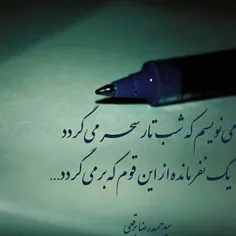 می نویسم که شب تار سحر می گردد
یک نفر مانده از این قوم که بر می گردد...
سید حمیدرضا برقعی